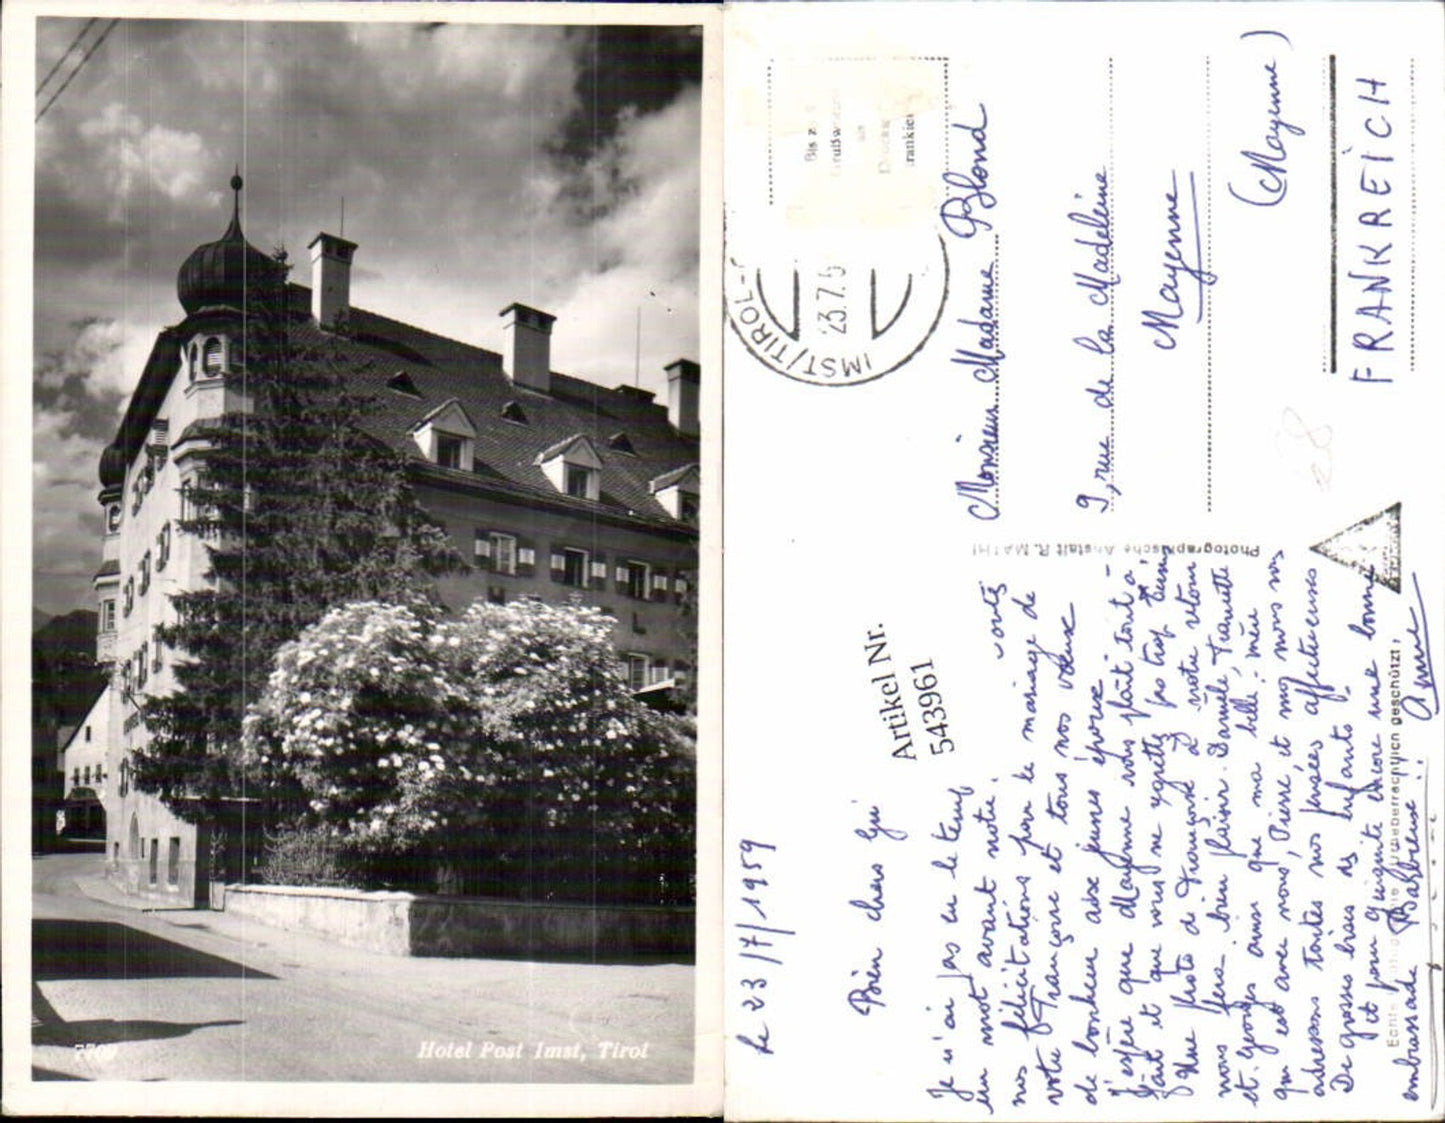 7709
Hotel Post Imst, Tirol
IMST/TIROL
23.7.5
Artikel Nr.
543961
Monsieur Madame Blond
9, rue de la Madeleine
Mayenne
(Mayenne)
FRANKREICH
Photographische Anstalt R. MATHI
Echte
geschützt
le 23/7/1959
Bien chers
Je n'ai pas eu le temps
un mot avant notre
nos félicitations pour le mariage de votre
Françoise et tous nos vœux
de bonheur aux jeunes époux
J'espère que Mayenne vous plaît tout à
fait et que vous ne regrettez pas trop
Une photo de Françoise à notre retour
nous fera bien plaisir. Danièle,
et Georges ainsi que ma belle-mère
qui est avec nous, Pierre et moi nous vous
adressons toutes nos pensées affectueuses
De grosses bises des enfants
et pour vous encore une bonne
embrassade
Anne